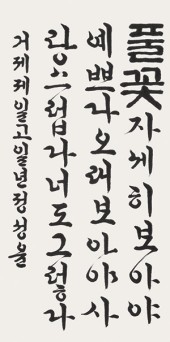 풀꽃자세히보아야
예쁘다오래보아야사
랑스럽다너도그렇다
거제제일고일년